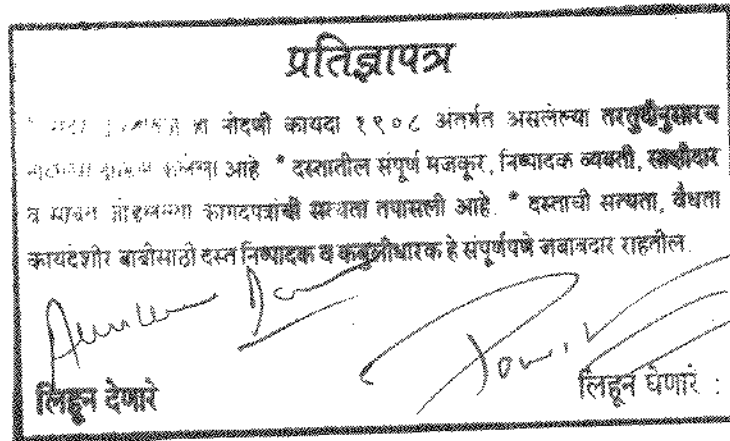 प्रतिज्ञापत्र
नोंदणी कायदा १९०८ अंतर्गत असलेल्या तरतुदीनुसारच
आहे * दस्तातील संपूर्ण मजकूर, निष्पादक व्यक्ती, साक्षीदार
व सोबत जोडलेल्या कागदपत्रांची सत्यता तपासली आहे. * दस्ताची सत्यता, वैधता
कायदेशीर बाबीसाठी दस्त निष्पादक व कबुलीधारक हे संपूर्णपणे जबाबदार राहतील.
लिहून देणारे
लिहून घेणारे :